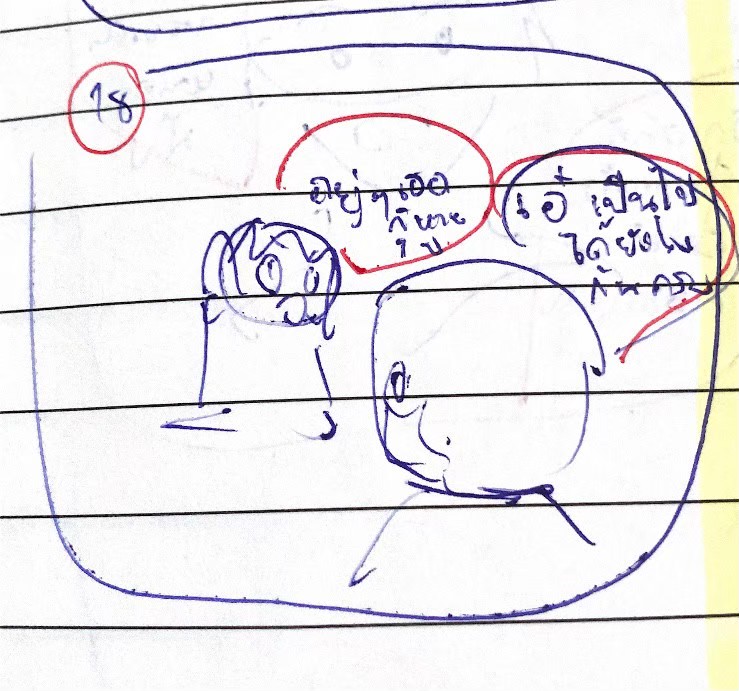 18
อยู่ๆเธอ
ก็หาย
ไป
เอ๋ เป็นไป
ได้ยังไง
กันครับ